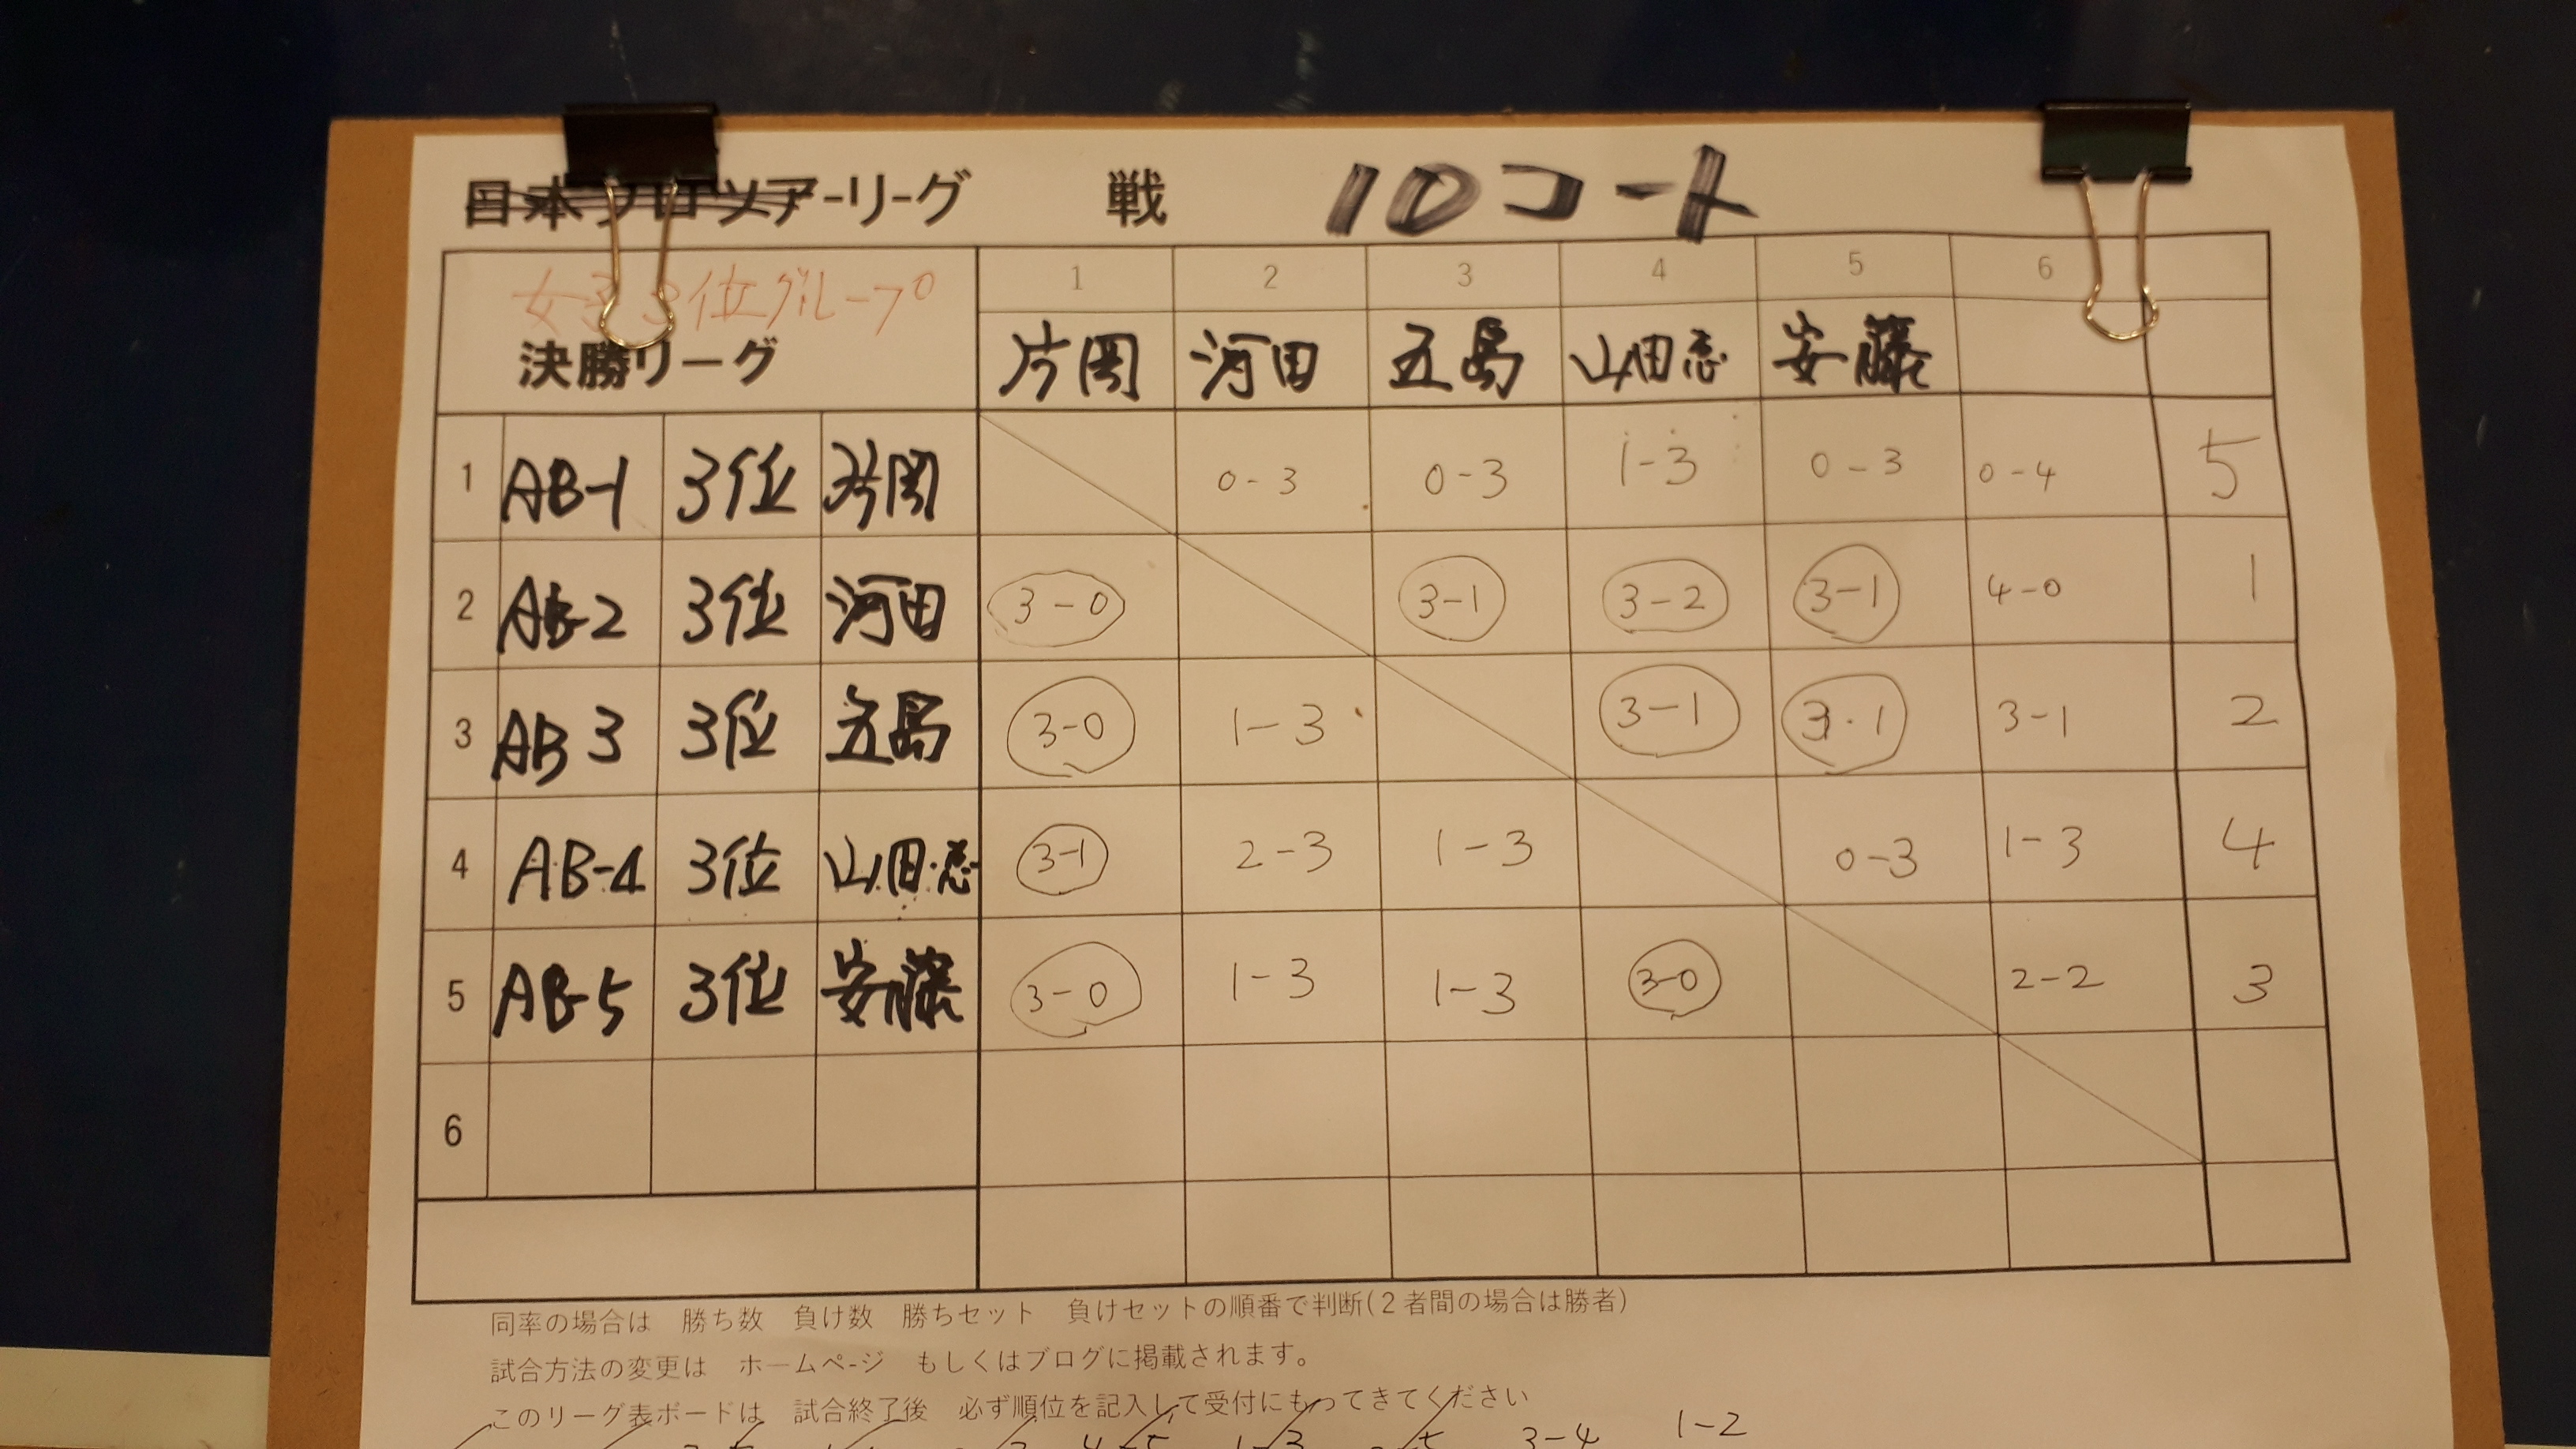 日本プロツアーリーグ 戦 10コート
女子3位グループ
決勝リーグ
1 2 3 4 5 6
片岡 河田 五島 山田恵 安藤
1 AB-1 3位 片岡 0-3 0-3 1-3 0-3 0-4 5
2 AB-2 3位 河田 3-0 3-1 3-2 3-1 4-0 1
3 AB 3 3位 五島 3-0 1-3 3-1 3-1 3-1 2
4 AB-4 3位 山田恵 3-1 2-3 1-3 0-3 1-3 4
5 AB-5 3位 安藤 3-0 1-3 1-3 3-0 2-2 3
6
同率の場合は 勝ち数 負け数 勝ちセット 負けセットの順番で判断(2者間の場合は勝者)
試合方法の変更は ホームページ もしくはブログに掲載されます。
このリーグ表ボードは 試合終了後 必ず順位を記入して受付にもってきてください
4-5 1-3 3-4 1-2